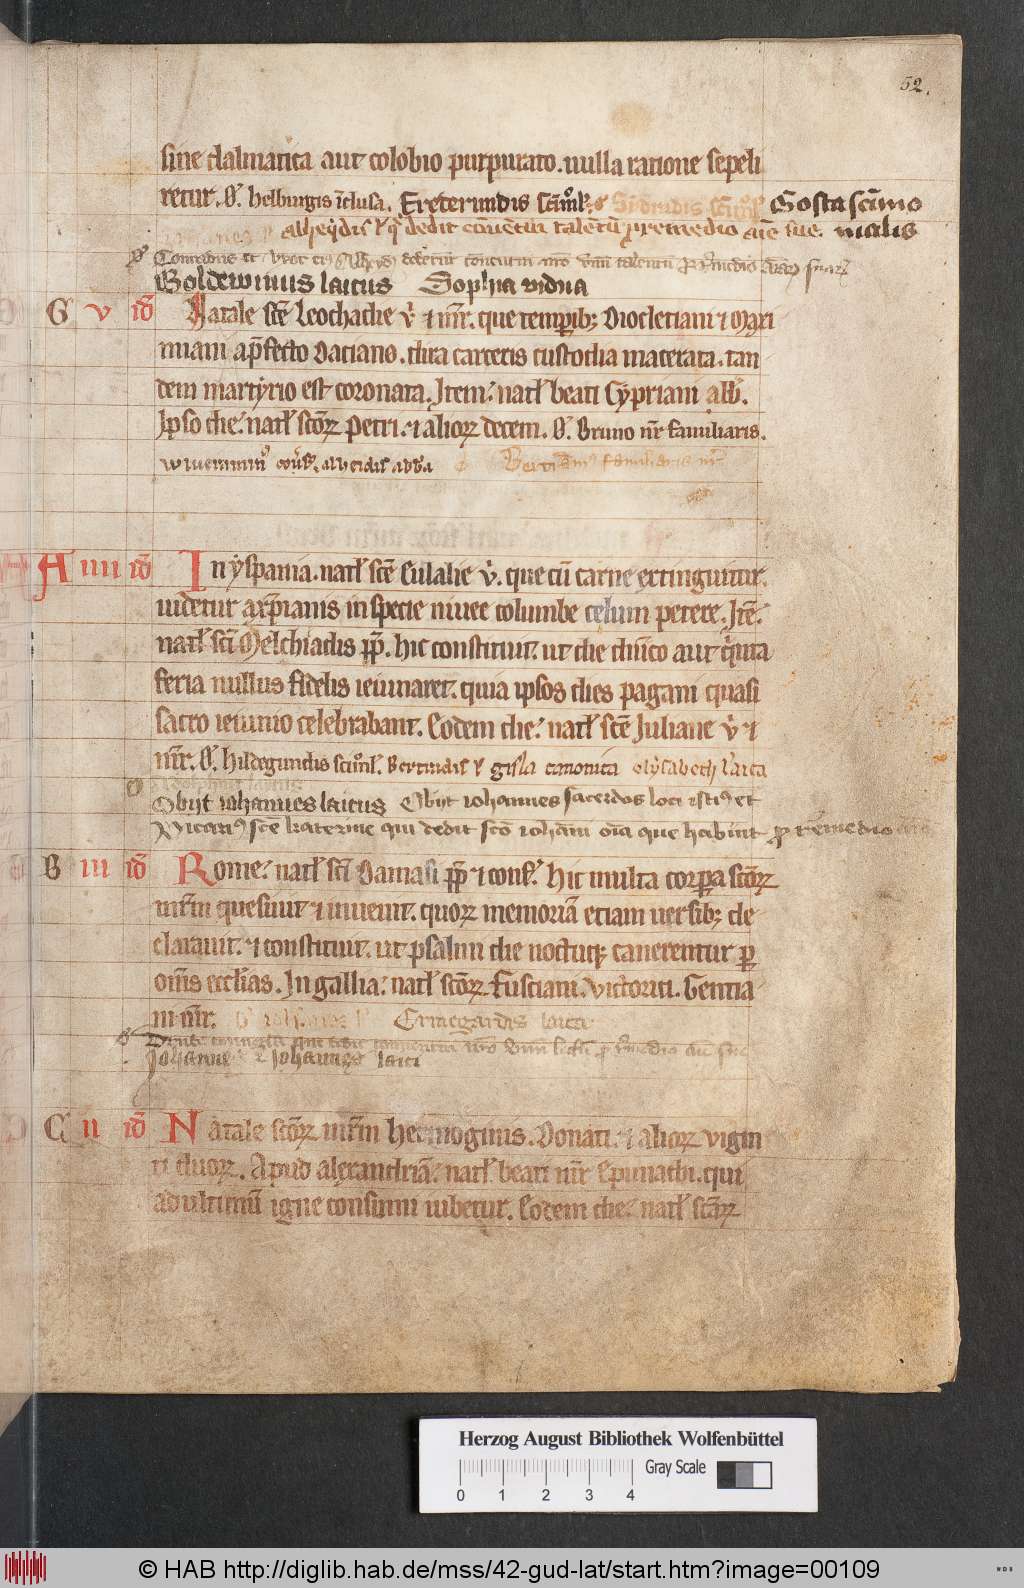 52.
sine dalmatica aut colobio purpurato. nulla ratione sepeli
retur. O. helburgis īclusa. Ertherundis scīmoīl. Gosta scīmo
alheydis qͥ dedit cōuentui talētū p remedio aīe sue. nialis
Conradus et vxor ei
Boldewinus laicus Sophia vidua
G v id Natale scē Leochadie v̄ ⁊ mr̄. que temꝑibꝫ Diocletiani ⁊ Maxi
miani a p̄fecto Daciano. dira carceris custodia macerata. tan
dem martyrio est coronata. Item. natl̄ beati Cypriani abb̄.
Ipso die. natl̄ scōꝝ Petri. ⁊ alioꝝ decem. O. Bruno nr̄ familiaris.
alheidis abb̄a familiaris nr̄
A iiii id In yspania. natl̄ scē Eulalie v̄. que cū carne extinguitur.
uidetur a xp̄ianis in specie niuee columbe celum petere. Itē.
natl̄ scī Melchiadis pp̄. hic constituit. ut die dn̄ico aut qͥnta
feria nullus fidelis ieiunaret. quia ipsos dies pagani quasi
sacro ieiunio celebrabant. Eodem die. natl̄ scē Juliane v̄ ⁊
mr̄. O. hildegundis scīmoīl. Bertradis gisla canonica elysabech laica
Obijt iohannes laicus Obijt iohannes sacerdos loci istius et
vicarius scē katerine qui dedit scō iohāni oīa que habuit p remedio
B iii id Rome. natl̄ scī Damasi pp̄ ⁊ conf. hic multa corꝑa scōꝝ
mr̄m quesiuit ⁊ inuenit. quoꝝ memoriā etiam uersibꝫ de
clarauit. ⁊ constituit. ut psalmi die noctuqꝫ canerentur ꝑ
om̄s eccl̄ias. In gallia. natl̄ scōꝝ Fusciani. Victorici. Gentia
ni mr̄. Ermegardis laica
Johannes ⁊ Johannes laici
C ii id Natale scōꝝ mr̄m hermoginis. Donati. ⁊ alioꝝ vigin
ti duoꝝ. Apud alexandriā. natl̄ beati mr̄ Epimachi. qui
ad ultimū igne consumi iubetur. Eodem die. natl̄ scāꝝ
Herzog August Bibliothek Wolfenbüttel
Gray Scale
0 1 2 3 4
© HAB http://diglib.hab.de/mss/42-gud-lat/start.htm?image=00109